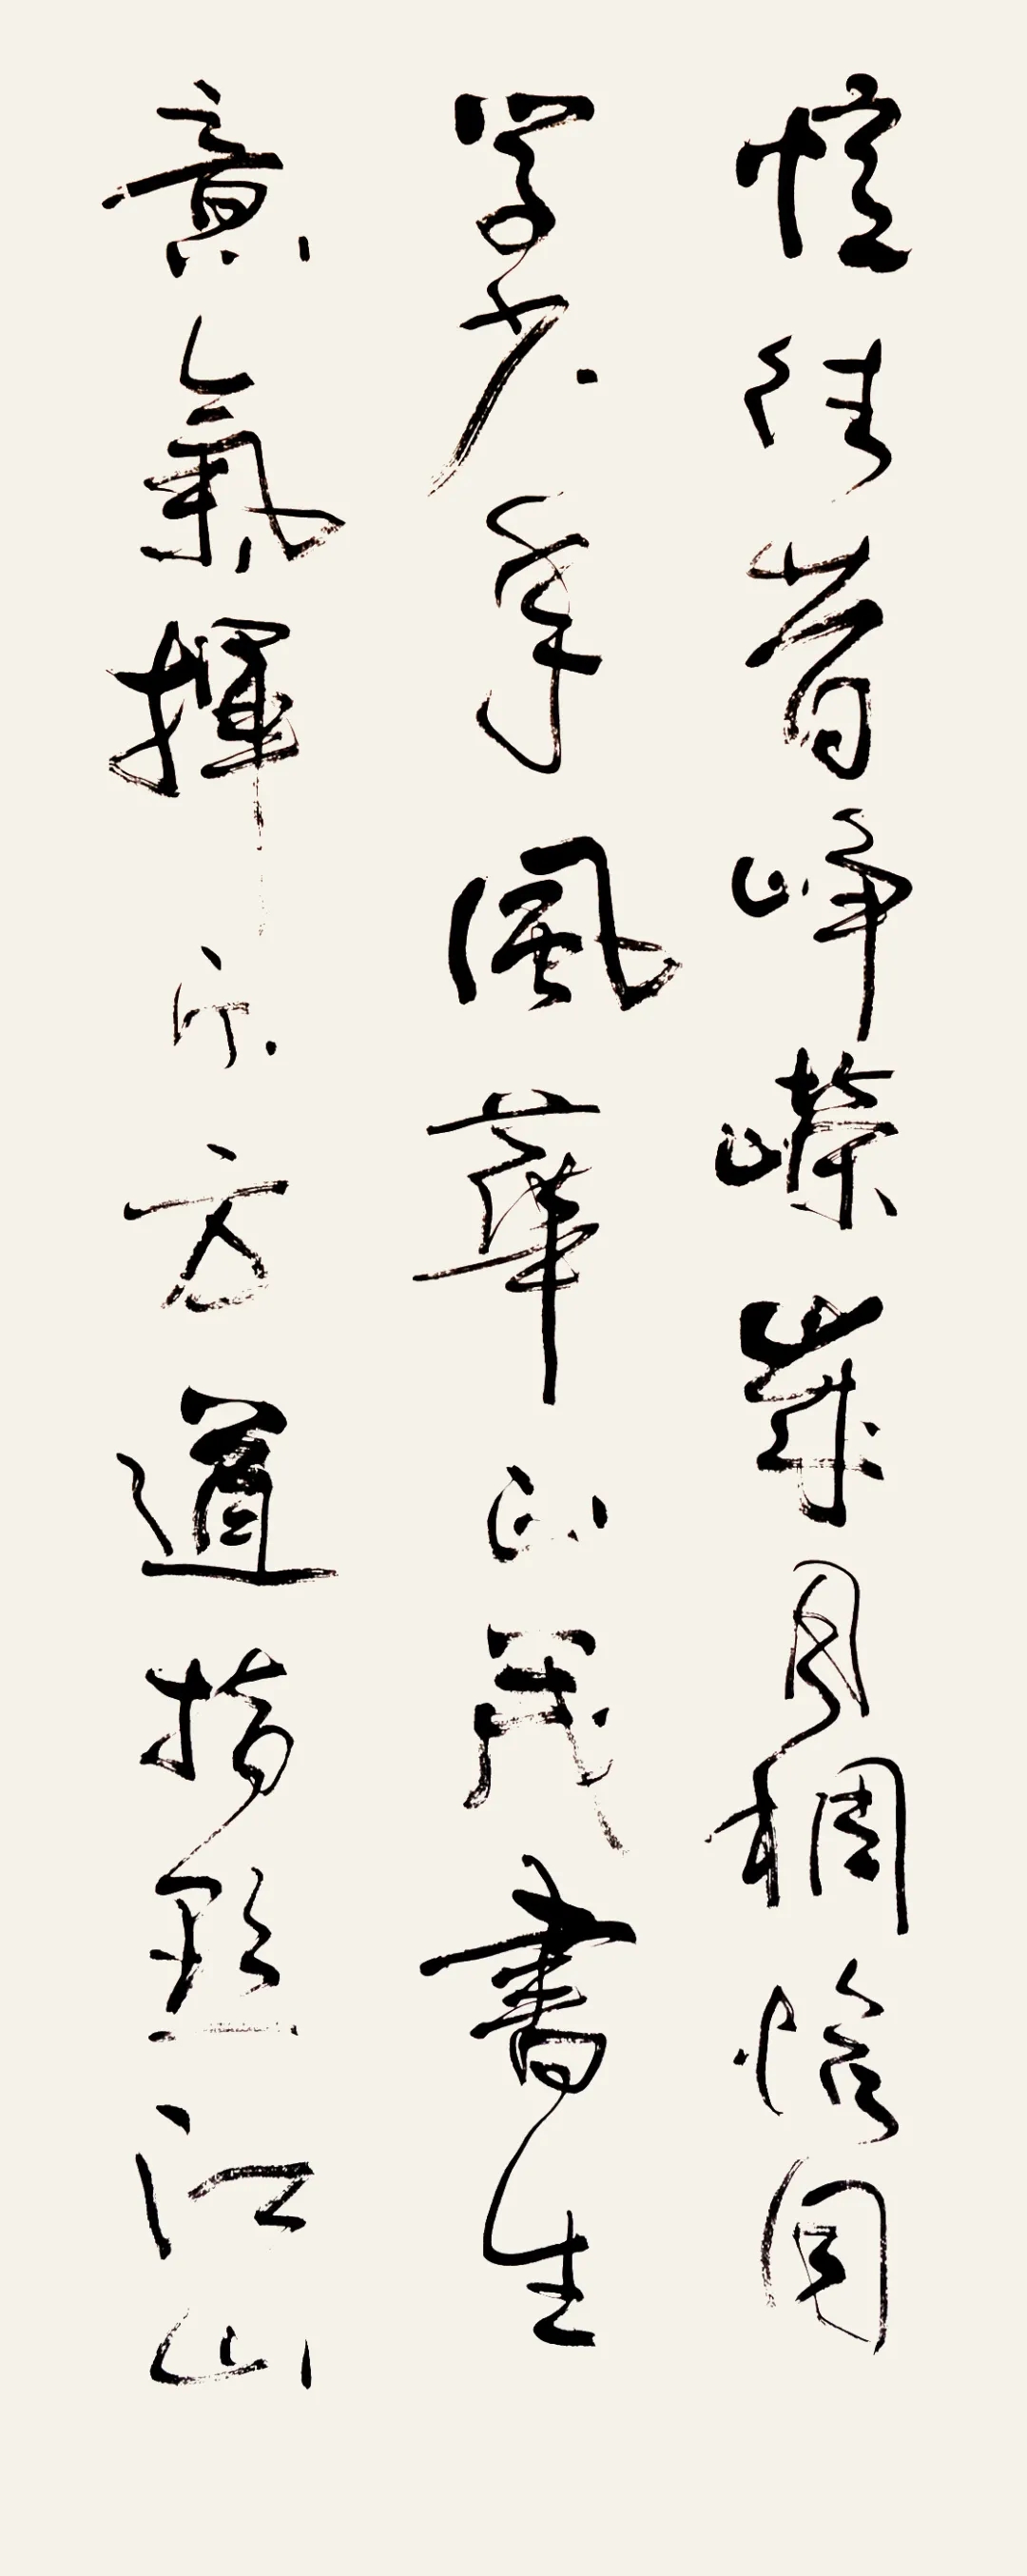 憶往昔峥嶸歲月稠恰同
学少年風華正茂書生
意氣揮斥方遒指點江山